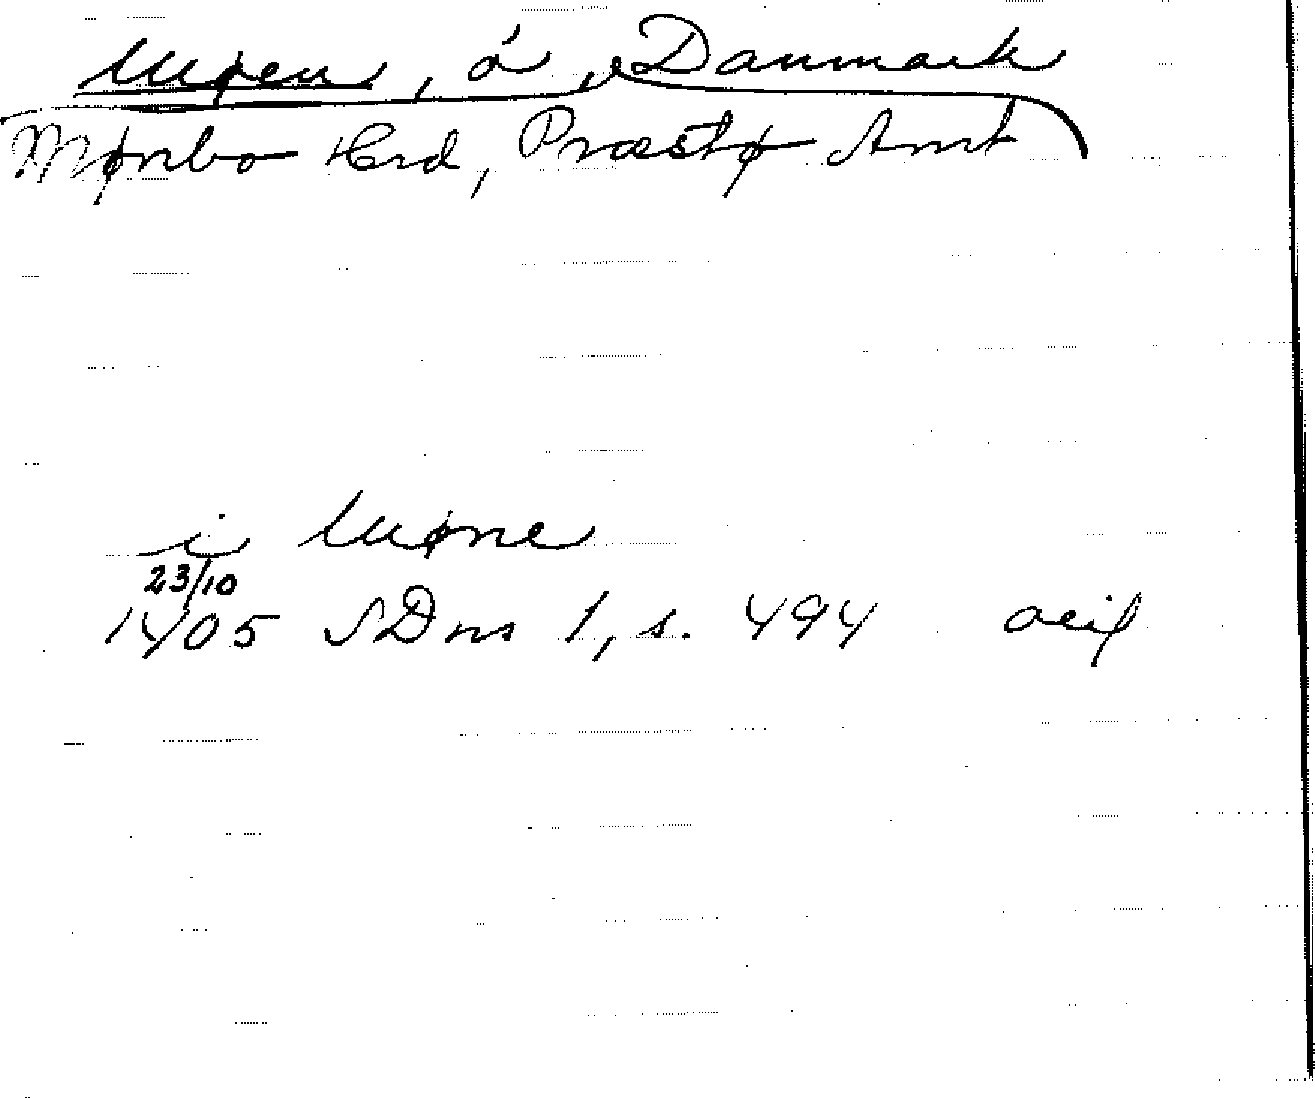 Møen, ö, Danmark
Mønbo Hrd, Præstø Amt
i Møne
23/10
1405 SDns 1, s. 494 avif